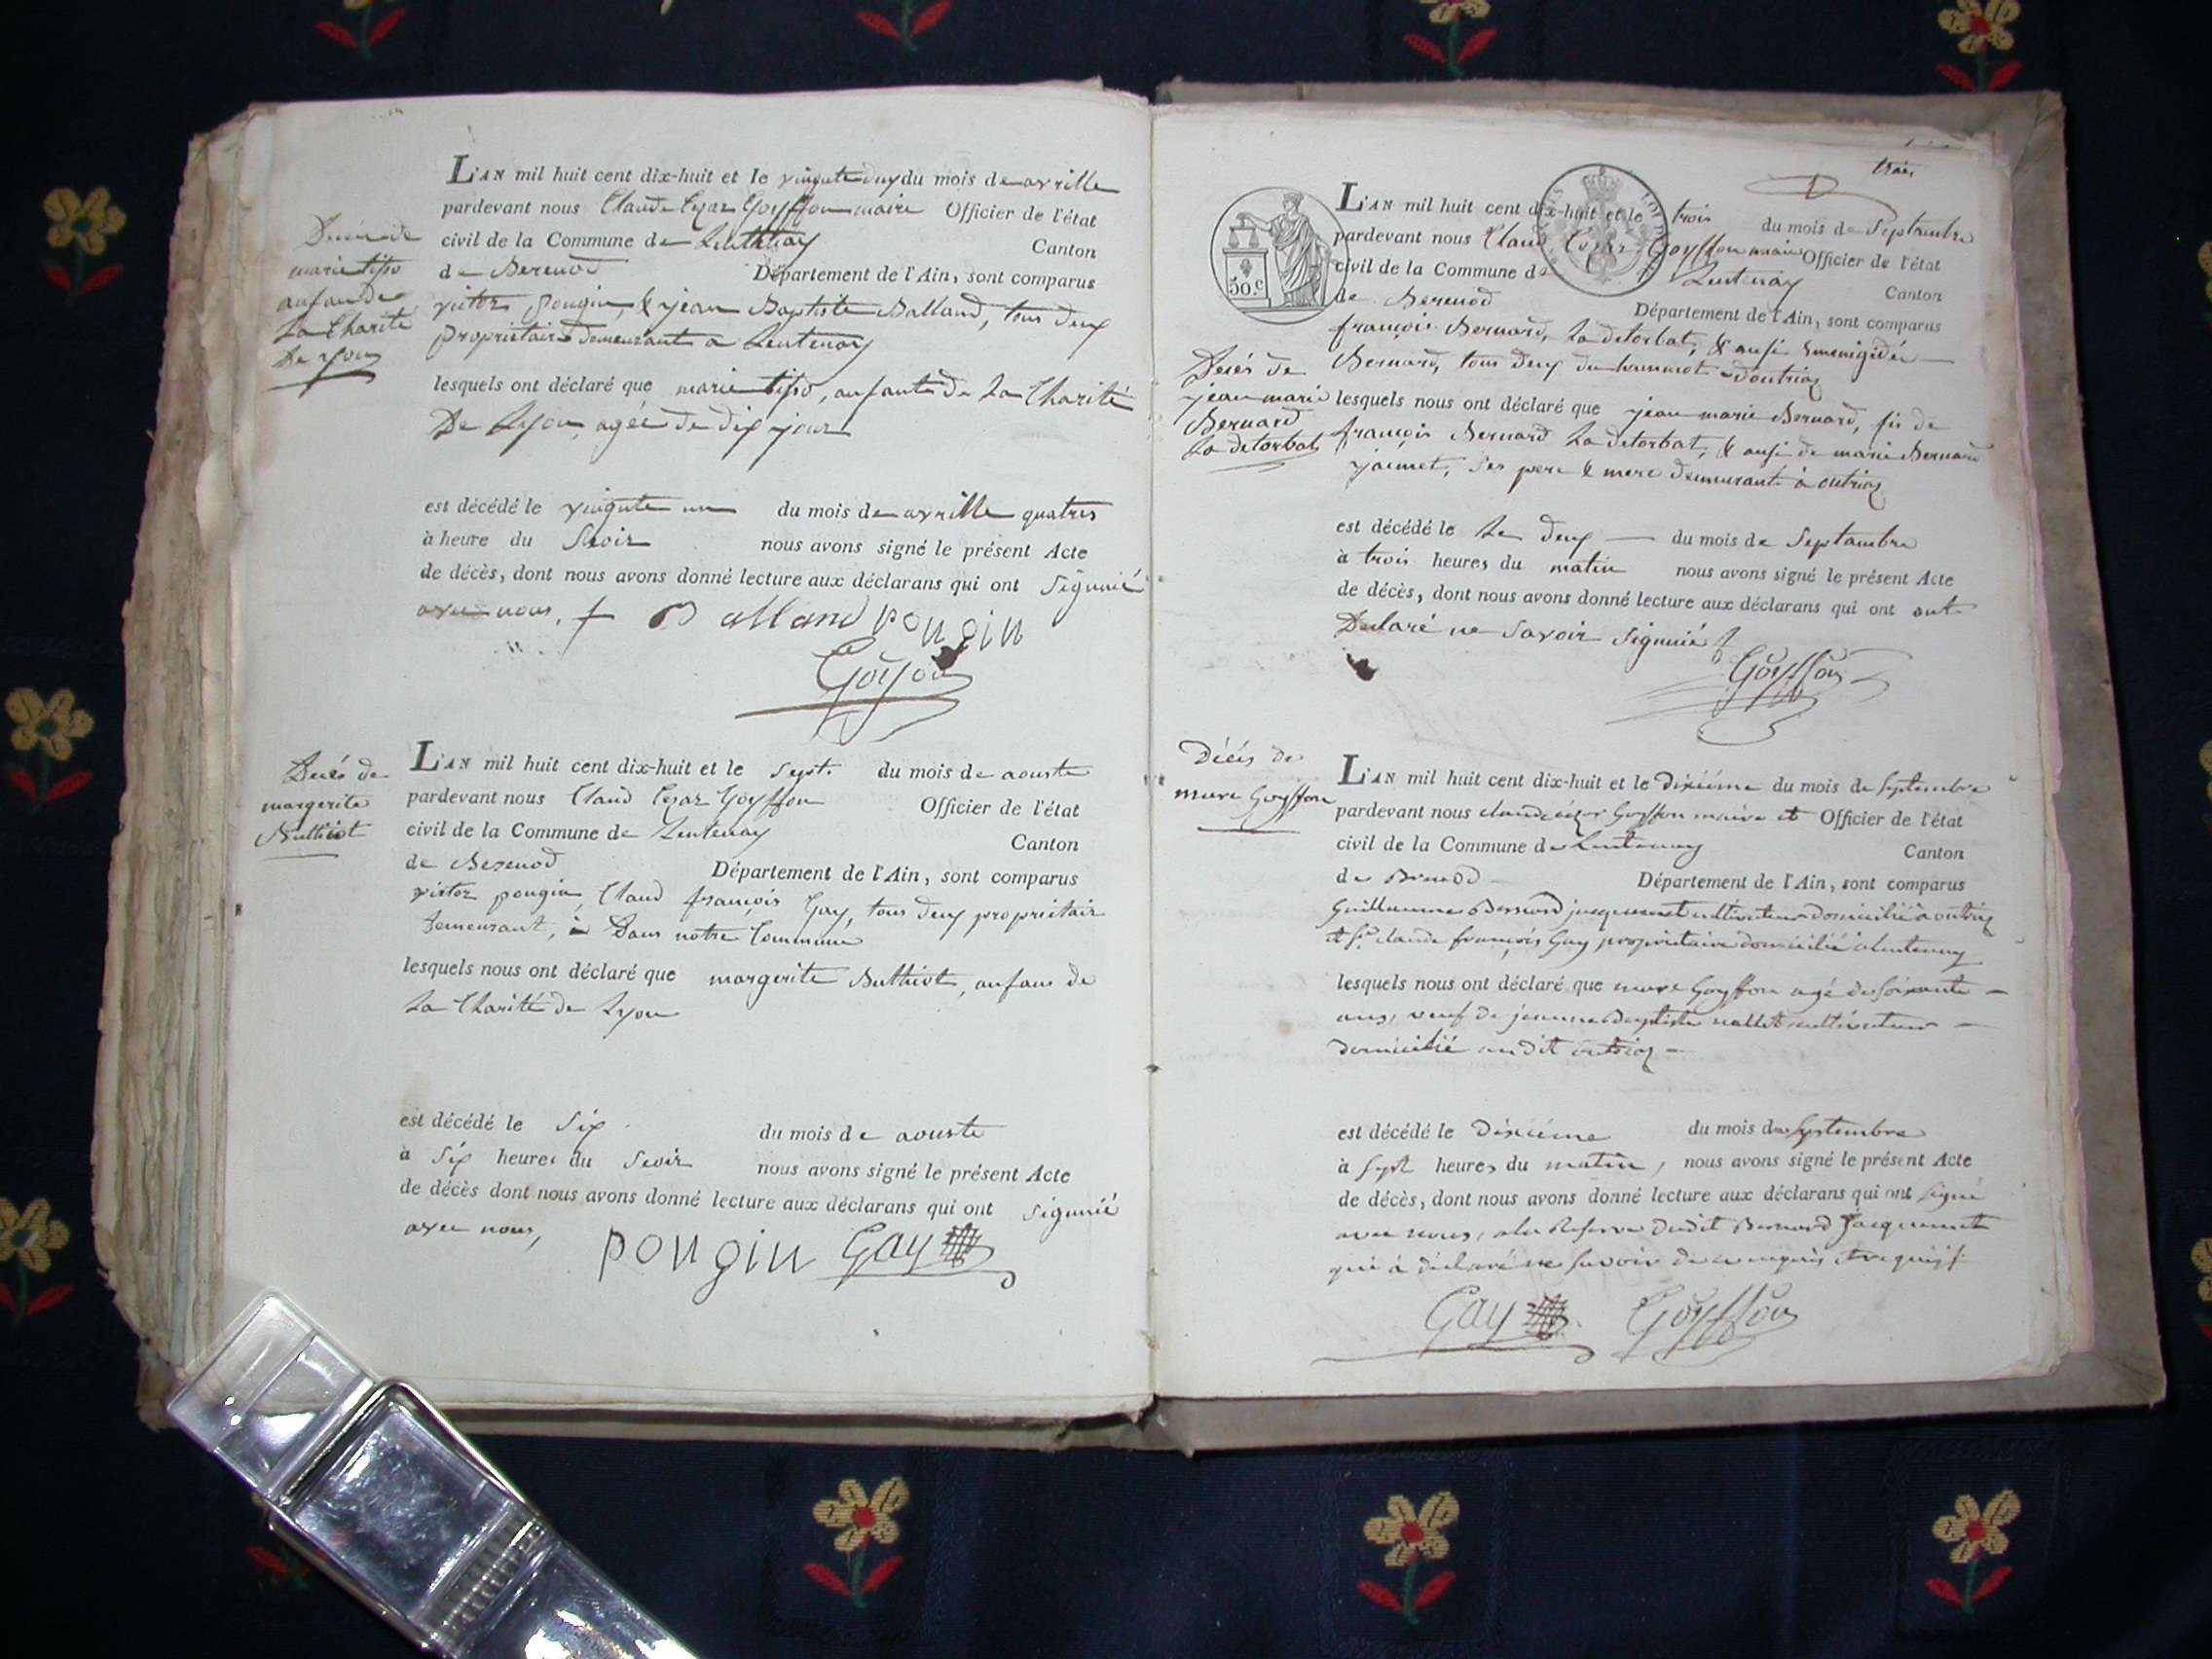 L'AN mil huit cent dix-huit et le vingute deux du mois de avrille
pardevant nous Claude Cezar Goyffon maire Officier de l'état
civil de la Commune de Lentenay Canton
de Berenod Département de l'Ain, sont comparus
victor pougin, & jean Baptiste Balland, tous deux
proprietair demeurant a Lentenay
lesquels ont déclaré que marie tiso, anfant de La Charité
De Lyon, agée de dix jour
est décédé le vingute un du mois de avrille quatres
à heure du Sévoir nous avons signé le présent Acte
de décès, dont nous avons donné lecture aux déclarans qui ont signuié
avec nous,
Balland pougin
Goyfon
Decés de
marie tiso
anfan de
La Charité
De Lyon
L'AN mil huit cent dix-huit et le sept. du mois de aouste
pardevant nous Claud Cezar Goyffon Officier de l'état
civil de la Commune de Lentenay Canton
de Berenod Département de l'Ain, sont comparus
victor pougin, Claud françois Gay, tous deux proprietair
Demeurant, à Dans notre Commune
lesquels nous ont déclaré que margerite Buthiot, anfans de
La Charité de Lyon
est décédé le Six du mois de aouste
à Six heures du Sevoir nous avons signé le présent Acte
de décès dont nous avons donné lecture aux déclarans qui ont signuié
avec nous,
pougin Gay
Decés de
margerite
Buthiot
trois
50.c
L'AN mil huit cent dix-huit et le trois du mois de Septambre
pardevant nous Claud Cezar Goyffon maire Officier de l'état
civil de la Commune de Lentenay Canton
de Berenod Département de l'Ain, sont comparus
françois Bernard, La detorbat, & ausi
Bernard, tous deux du hammot d'outriaz
lesquels nous ont déclaré que jean marie Bernard, fis de
françois Bernard La detorbat, & ausi de marie Bernard
jacmet, ses pere & mere demeurant à outriaz
est décédé le Le deux du mois de Septambre
à trois heures du matin nous avons signé le présent Acte
de décès, dont nous avons donné lecture aux déclarans qui ont ont
Declaré ne savoir signuié
Goyffon
Decés de
jean marie
Bernard
La detorbat
L'AN mil huit cent dix-huit et le dixiéme du mois de Septembre
pardevant nous claude cézar Goyffon maire et Officier de l'état
civil de la Commune de Lentenay Canton
de Brenod Département de l'Ain, sont comparus
Guillaumme Bernard jacquemet cultivateur domicilié à outriaz
et Sr claude françois Gay propriétaire domicilié à lentenay
lesquels nous ont déclaré que marc Goyffon agé de soixante
ans, veuf de jeanne Baptiste nallet cultivateur
domicilié au dit outriaz
est décédé le dixiéme du mois de Septembre
à sept heures du matin, nous avons signé le présent Acte
de décès, dont nous avons donné lecture aux déclarans qui ont signé
avec nous, a la Reserve dudit Bernard Jacquemet
qui à déclaré ne savoir de ce enquis et requis
Gay Goyffon
Décés de
marc Goyffon